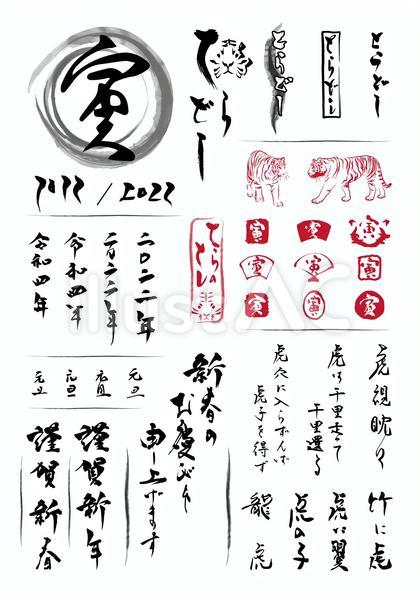 寅
とらどし
とらどし
とらどし
とらどし
2022 / 2022
二〇二二年
二〇二二年
令和四年
令和四年
とらの
とし
寅
寅
寅
寅
寅
寅
寅
寅
寅
元旦
元旦
元旦
元旦
新春の
お慶びを
申し上げます
謹賀新年
謹賀新春
虎視眈々
虎は千里往って
千里還る
虎穴に入らずんば
虎子を得ず
竹に虎
虎に翼
虎の子
龍虎
illustAC